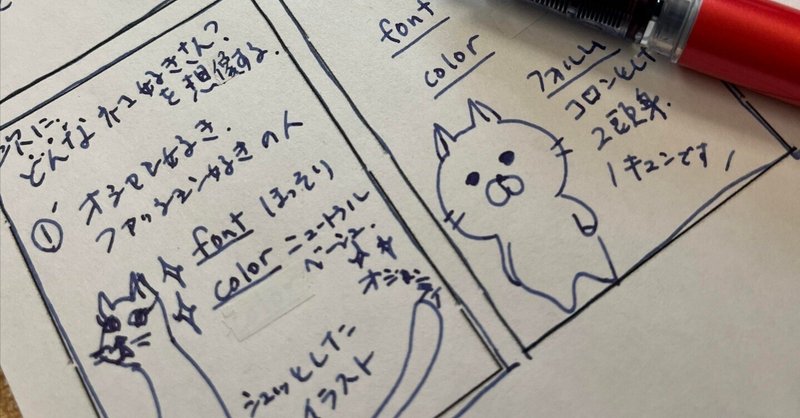 次に、
どんなネコ好きさん?
を想像する。
① オシャレ好き。
ファッション好きの人
font ほっそり
color ニュートラル
ベージュ
オシャンティ
シュッとした
イラスト
font
color
フォルム
コロンとした
2頭身。
\キュンです/